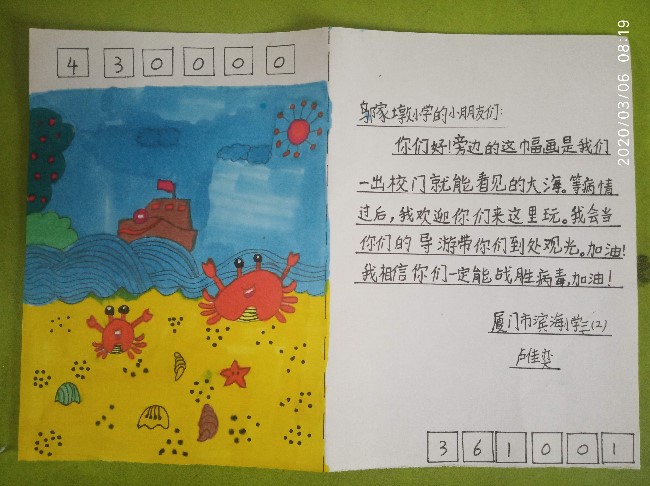 430000
邬家墩小学的小朋友们:
你们好!旁边的这巾幅画是我们
一出校门就能看见的大海。等病情
过后,我欢迎你们来这里玩。我会当
你们的导游带你们到处观光。加油!
我相信你们一定能战胜病毒,加油!
厦门市滨海小学三(2)
卢佳奕
361001
2020/03/06 08:19